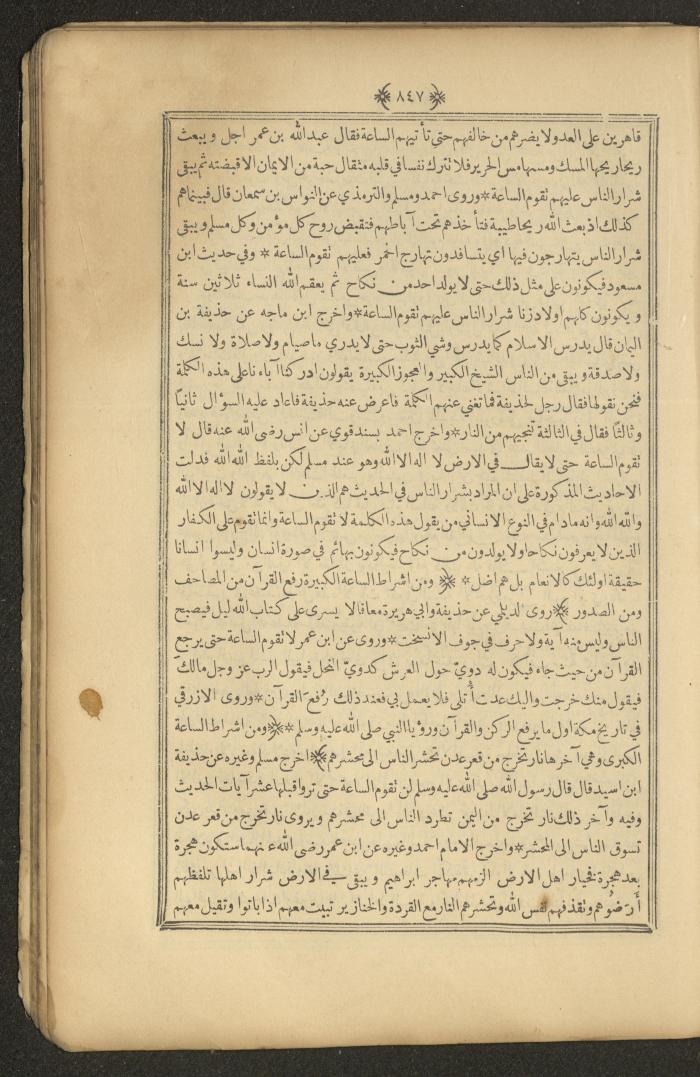 ﴿ ٨٤٧ ﴾
قاهرين على العدو لا يضرهم من خالفهم حتى تأتيهم الساعة فقال عبد الله بن عمر اجل و يبعث
ريحا ريحها المسك ومسها مس الحرير فلا تترك نفسا في قلبه مثقال حبة من الايمان الا قبضته ثم يبقى
شرار الناس عليهم تقوم الساعة * وروى احمد ومسلم والترمذي عن النواس بن سمعان قال فبينما هم
كذلك اذ بعث الله ريحا طيبة فتأخذهم تحت آباطهم فتقبض روح كل مؤمن وكل مسلم ويبقى
شرار الناس يتهارجون فيها اي يتسافدون تهارج الحمر فعليهم تقوم الساعة * وفي حديث ابن
مسعود فيكونون على مثل ذلك حتى لا يولد احد من نكاح ثم يعقم الله النساء ثلاثين سنة
و يكونون كلهم اولاد زنا شرار الناس عليهم تقوم الساعة * واخرج ابن ماجه عن حذيفة بن
اليمان قال يدرس الاسلام كما يدرس وشي الثوب حتى لا يدري ما صيام ولا صلاة ولا نسك
ولا صدقة و يبقى من الناس الشيخ الكبير والعجوز الكبيرة يقولون ادركنا آباءنا على هذه الكلمة
فنحن نقولها فقال رجل لحذيفة فما تغني عنهم الكلمة فاعرض عنه حذيفة فاعاد عليه السؤال ثانيًا
وثالثًا فقال في الثالثة تنجيهم من النار * واخرج احمد بسند قوي عن انس رضى الله عنه قال لا
تقوم الساعة حتى لا يقال في الارض لا اله الا الله وهو عند مسلم لكن بلفظ الله الله فدلت
الاحاديث المذكورة على ان المراد بشرار الناس في الحديث هم الذين لا يقولون لا اله الا الله
والله الله وانه ما دام في النوع الانساني من يقول هذه الكلمة لا تقوم الساعة وانما تقوم على الكفار
الذين لا يعرفون نكاحا ولا يولدون من نكاح فيكونون بهائم في صورة انسان وليسوا انسانا
حقيقة اولئك كالانعام بل هم اضل * ﴿ ومن اشراط الساعة الكبيرة رفع القرآن من المصاحف
ومن الصدور ﴾ روى الديلي عن حذيفة وابي هريرة معا قالا يسرى على كتاب الله ليل فيصبح
الناس وليس منه آية ولا حرف في جوف الا نسخت * وروى عن ابن عمر لا تقوم الساعة حتى يرجع
القرآن من حيث جاء فيكون له دويّ حول العرش كدويّ النحل فيقول الرب عز وجل مالك
فيقول منك خرجت واليك عدت أُتلى فلا يعمل بي فعند ذلك رُفع القرآن * وروى الازرقي
في تاريخ مكة اول ما يرفع الركن والقرآن ورؤيا النبي صلى الله عليه وسلم * ﴿ ومن اشراط الساعة
الكبرى وهي آخرها نار تخرج من قعر عدن تحشر الناس الى محشرهم ﴾ اخرج مسلم وغيره عن حذيفة
ابن اسيد قال قال رسول الله صلى الله عليه وسلم لن تقوم الساعة حتى تروا قبلها عشر آيات الحديث
وفيه وآخر ذلك نار تخرج من اليمن تطرد الناس الى محشرهم و يروى نار تخرج من قعر عدن
تسوق الناس الى المحشر * واخرج الامام احمد وغيره عن ابن عمر رضى الله عنهما ستكون هجرة
بعد هجرة فخيار اهل الارض الزمهم مهاجر ابراهيم و يبقى في الارض شرار اهلها تلفظهم
أَرَضُوهم وتقذفهم نفس الله وتحشرهم النار مع القردة والخنازير تبيت معهم اذا باتوا وتقيل معهم